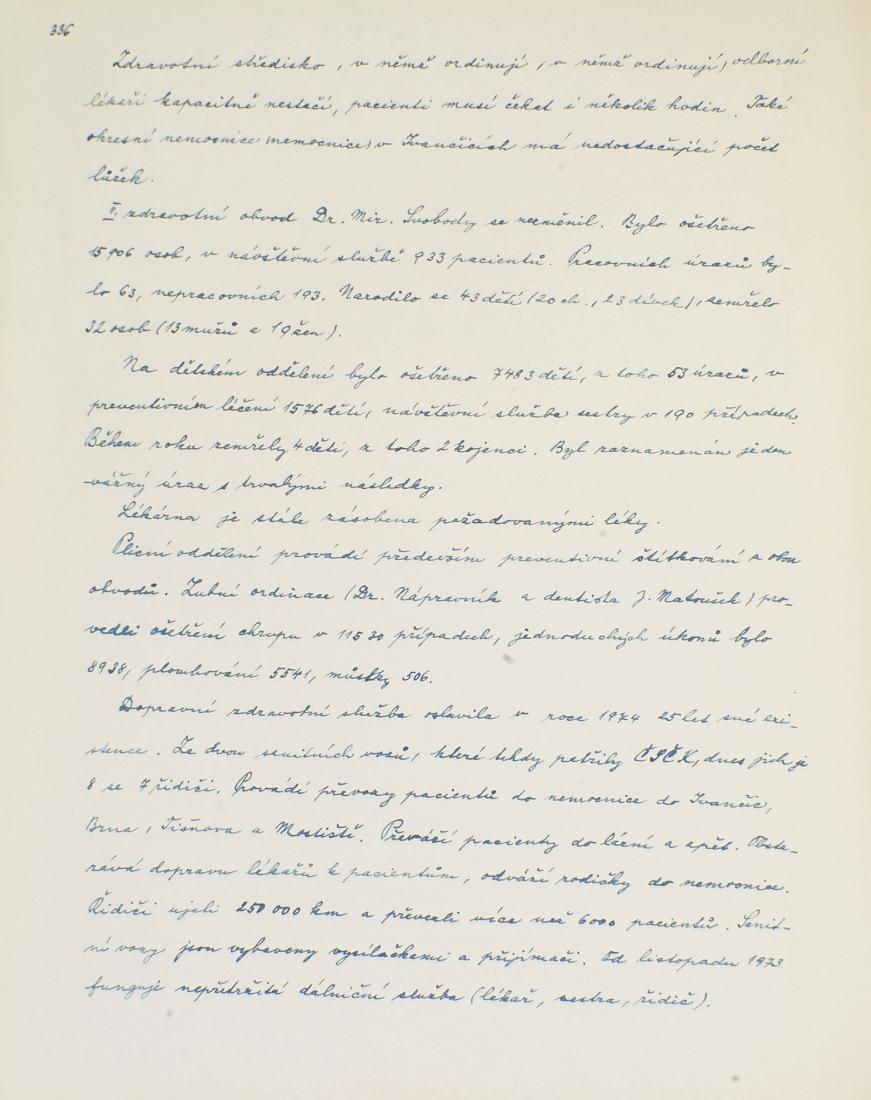 336
Zdravotní středisko, v němž ordinují, v němž ordinují) odborní
lékaři kapacitně nestačí, pacienti musí čekat i několik hodin. Také
okresní nemocnice (nemocnice) v Ivančicích má nedostačující počet
lůžek.
II. zdravotní obvod Dr. Mir. Svobody se nezměnil. Bylo ošetřeno
15 906 osob, v návštěvní službě 933 pacientů. Pracovních úrazů by-
lo 63, nepracovních 193. Narodilo se 43 dětí (20 ch., 23 dívek), zemřelo
32 osob (13 mužů a 19 žen).
Na dětském oddělení bylo ošetřeno 7483 dětí, z toho 53 úrazů, v
preventivním léčení 1576 dětí, návštěvní služba sestry v 190 případech.
Během roku zemřely 4 děti, z toho 2 kojenci. Byl zaznamenán jeden
vážný úraz s trvalými následky.
Lékárna je stále zásobena požadovanými léky.
Plicní oddělení provádí především preventivní štítkování z obou
obvodů. Zubní ordinace (Dr. Nápravník a dentista J. Matoušek) pro-
vedli ošetření chrupu v 11530 případech, jednoduchých úkonů bylo
8938, plombování 5541, můstky 506.
Dopravní zdravotní služba oslavila v roce 1974 25 let své exi-
stence. Ze dvou sanitních vozů, které tehdy patřily ČSČK, dnes jich je
8 se 7 řidiči. Provádí převozy pacientů do nemocnice do Ivančic,
Brna, Tišnova a Mostiště. Převáží pacienty do lázní a zpět. Obsta-
rává dopravu lékařů k pacientům, odváží rodičky do nemocnice.
Řidiči ujeli 250 000 km a převezli více než 6000 pacientů. Sanit-
ní vozy jsou vybaveny vysílačkami a přijímači. Od listopadu 1973
funguje nepřetržitá dálniční služba (lékař, sestra, řidič).